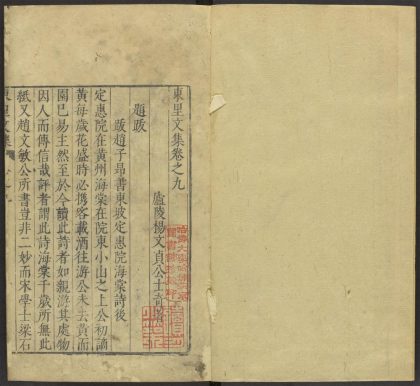 東里文集卷之九
廬陵楊文貞公士奇著
題跋
跋趙子昂書東坡定惠院海棠詩後
定惠院在黃州海棠在院東小山之上公初謫
黃每歲花盛時必携客載酒往游公未去黃而
園已易主然至於今讀此詩者如親游其處物
因人而傳信哉評者謂此詩海棠千歲所無此
紙又趙文敏公所書豈非二妙而宋學士梁石
東里文集